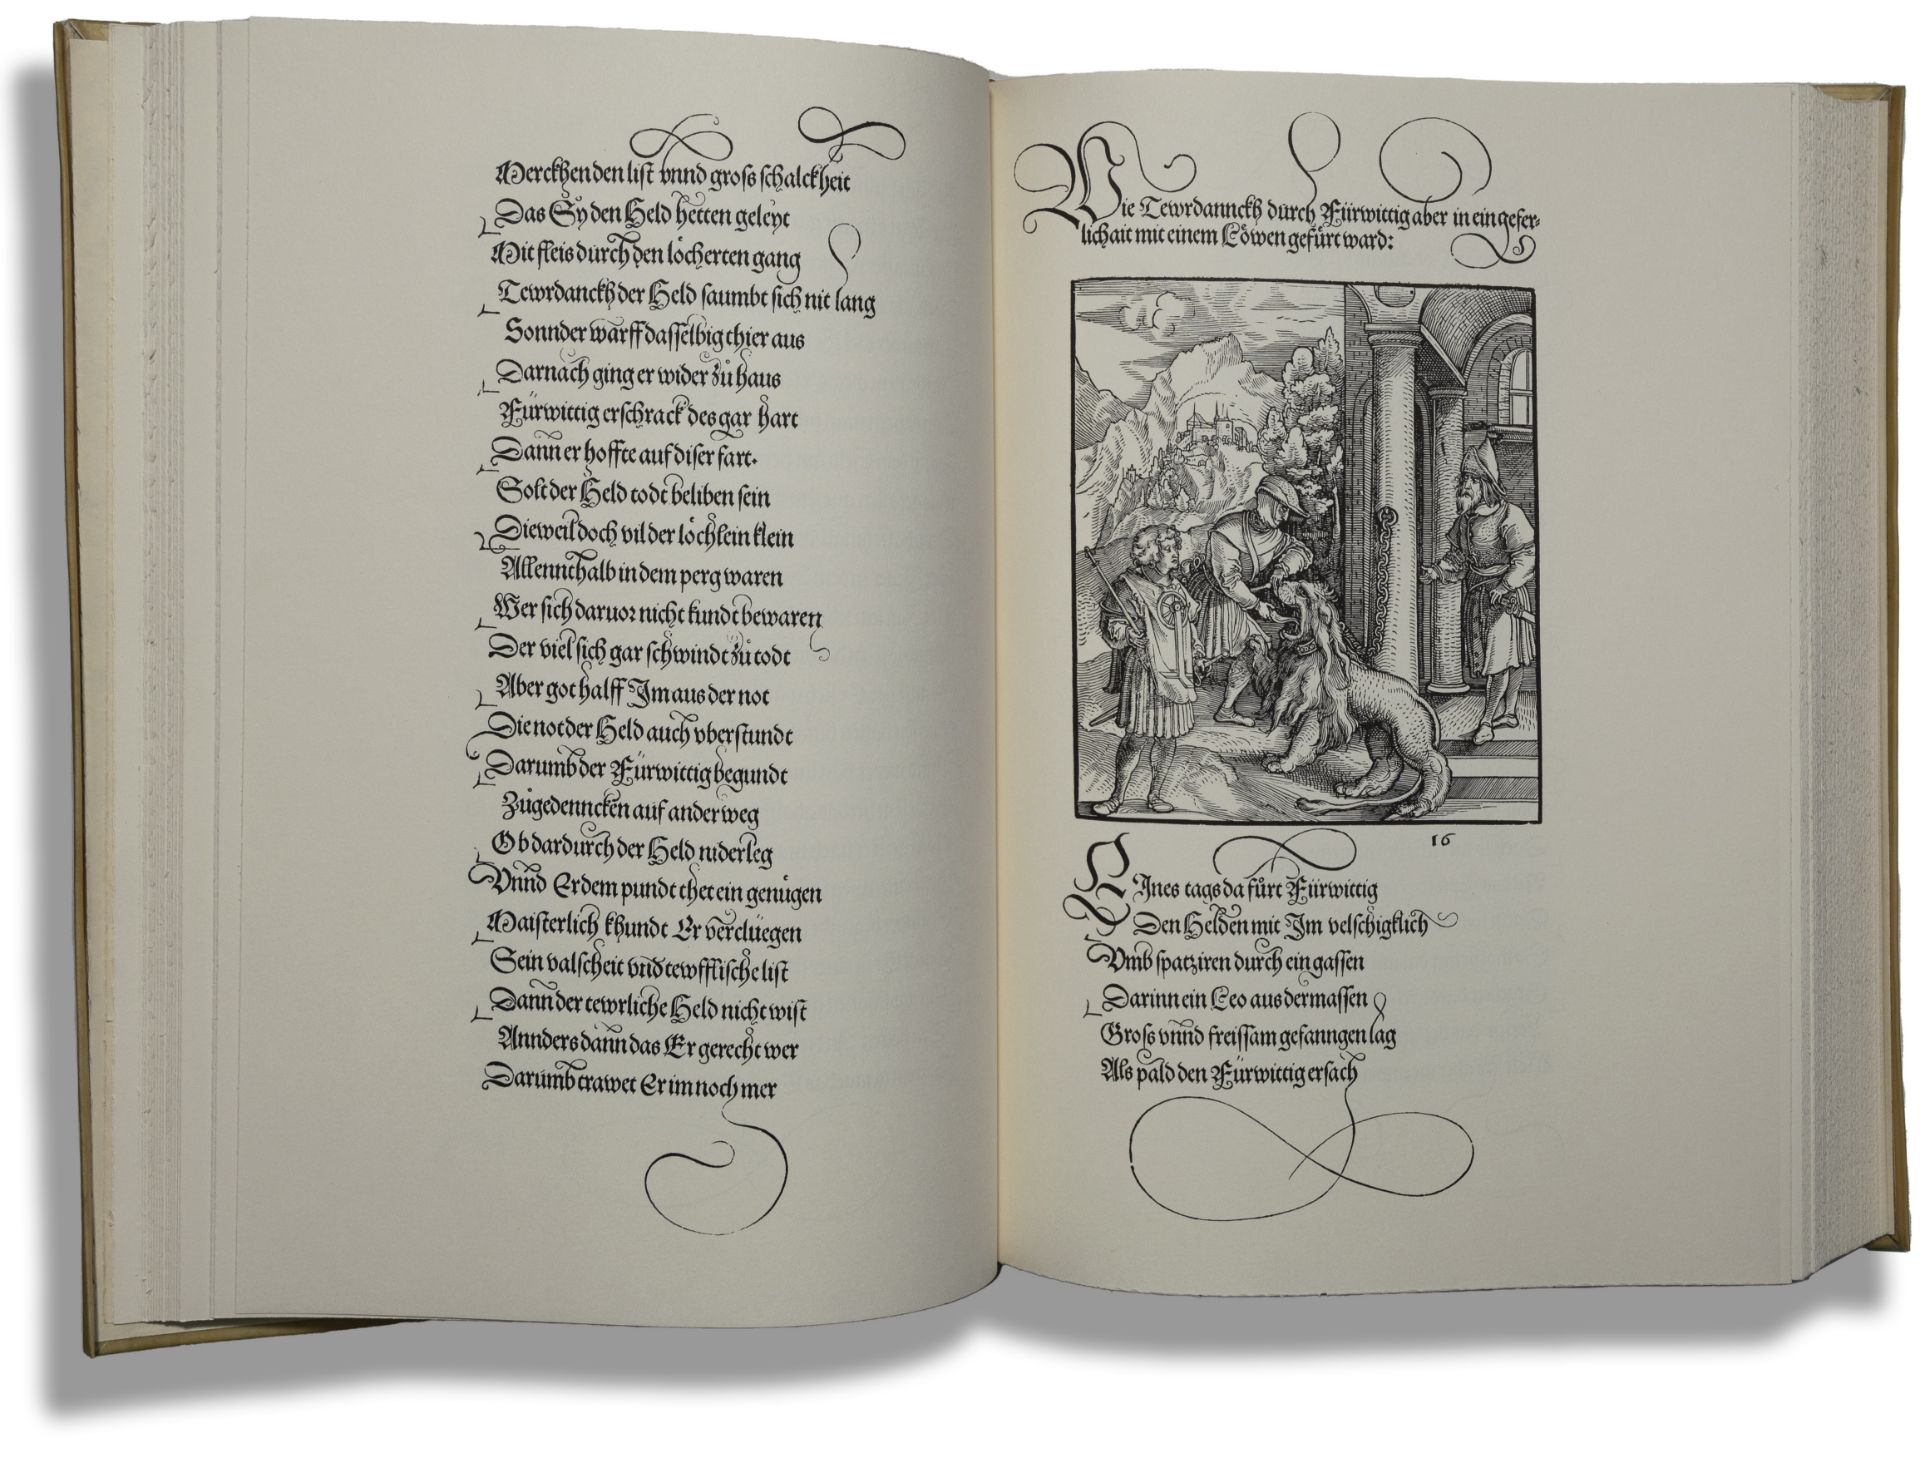 Merckhen den list vnnd gross schalckheit
Das Sy den Held hetten geleyt
Mit fleis durch den löcherten gang
Tewrdanckh der Held saumbt sich nit lang
Sonnder warff dasselbig thier aus
Darnach ging er wider zů haus
Fürwittig erschrack des gar hart
Dann er hoffte auf diser fart.
Solt der Held todt beliben sein
Dieweil doch vil der löchlein klein
Allennthalb in dem perg waren
Wer sich daruor nicht kundt bewaren
Der viel sich gar schwindt zů todt
Aber got halff Im aus der not
Die not der Held auch vberstundt
Darumb der Fürwittig begundt
Zůgedenncken auf ander weg
Ob dardurch der Held niderleg
Vnnd Er dem pundt thet ein genügen
Maisterlich khundt Er vertlüegen
Sein valscheit vnd tewfflische list
Dann der tewrliche Held nicht wist
Annders dann das Er gerecht wer
Darumb trawet Er im noch mer
Wie Tewrdannckh durch Fürwittig aber in ein gefer-
lichait mit einem Löwen gefürt ward:
16
EInes tags da fůrt Fürwittig
Den Helden mit Im velschigklich
Vmb spatziren durch ein gassen
Darinn ein Leo aus dermassen
Gross vnnd freissam gefanngen lag
Als pald den Fürwittig ersach